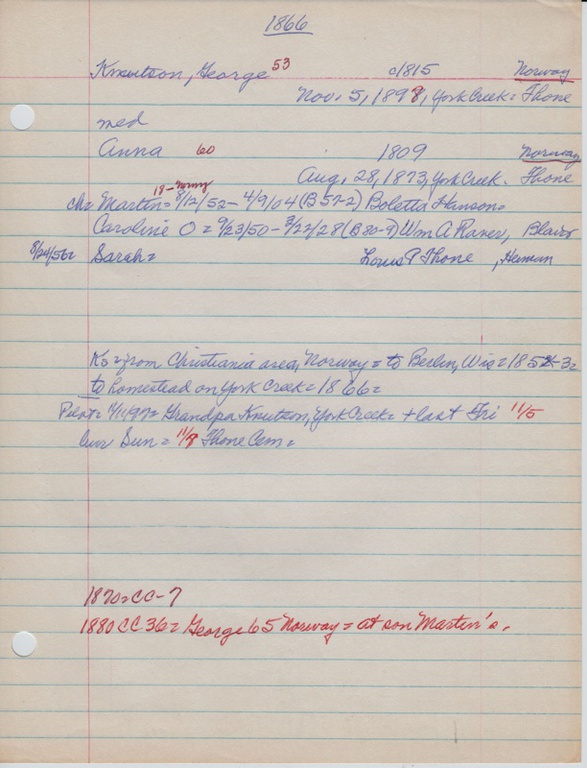 1866
Knutson, George 53 c1815 Norway
Nov. 5, 1898, York Creek = Thone
med
Anna 60 1809 Norway
Aug. 28, 1873, York Creek. Thone
18 - Norway
ch = Martin = 8/12/52 - 4/9/04 (B 57-2) Boletta Hanson =
Caroline O = 9/23/50 - 3/22/28 (B80-9) Wm A Raner, Blair
8/24/56 = Sarah = Louis P Thone, Herman
Ks = from Christiania area, Norway = to Berlin, Wis = 1852-3 =
to homestead on York Creek = 1866 =
Pilot = Grandpa Knutson, York Creek = + last Fri 11/5
bur Sun = Thone Cem =
1870 = CC-7
1880 CC 36 = George 65 Norway = at son Martin's.